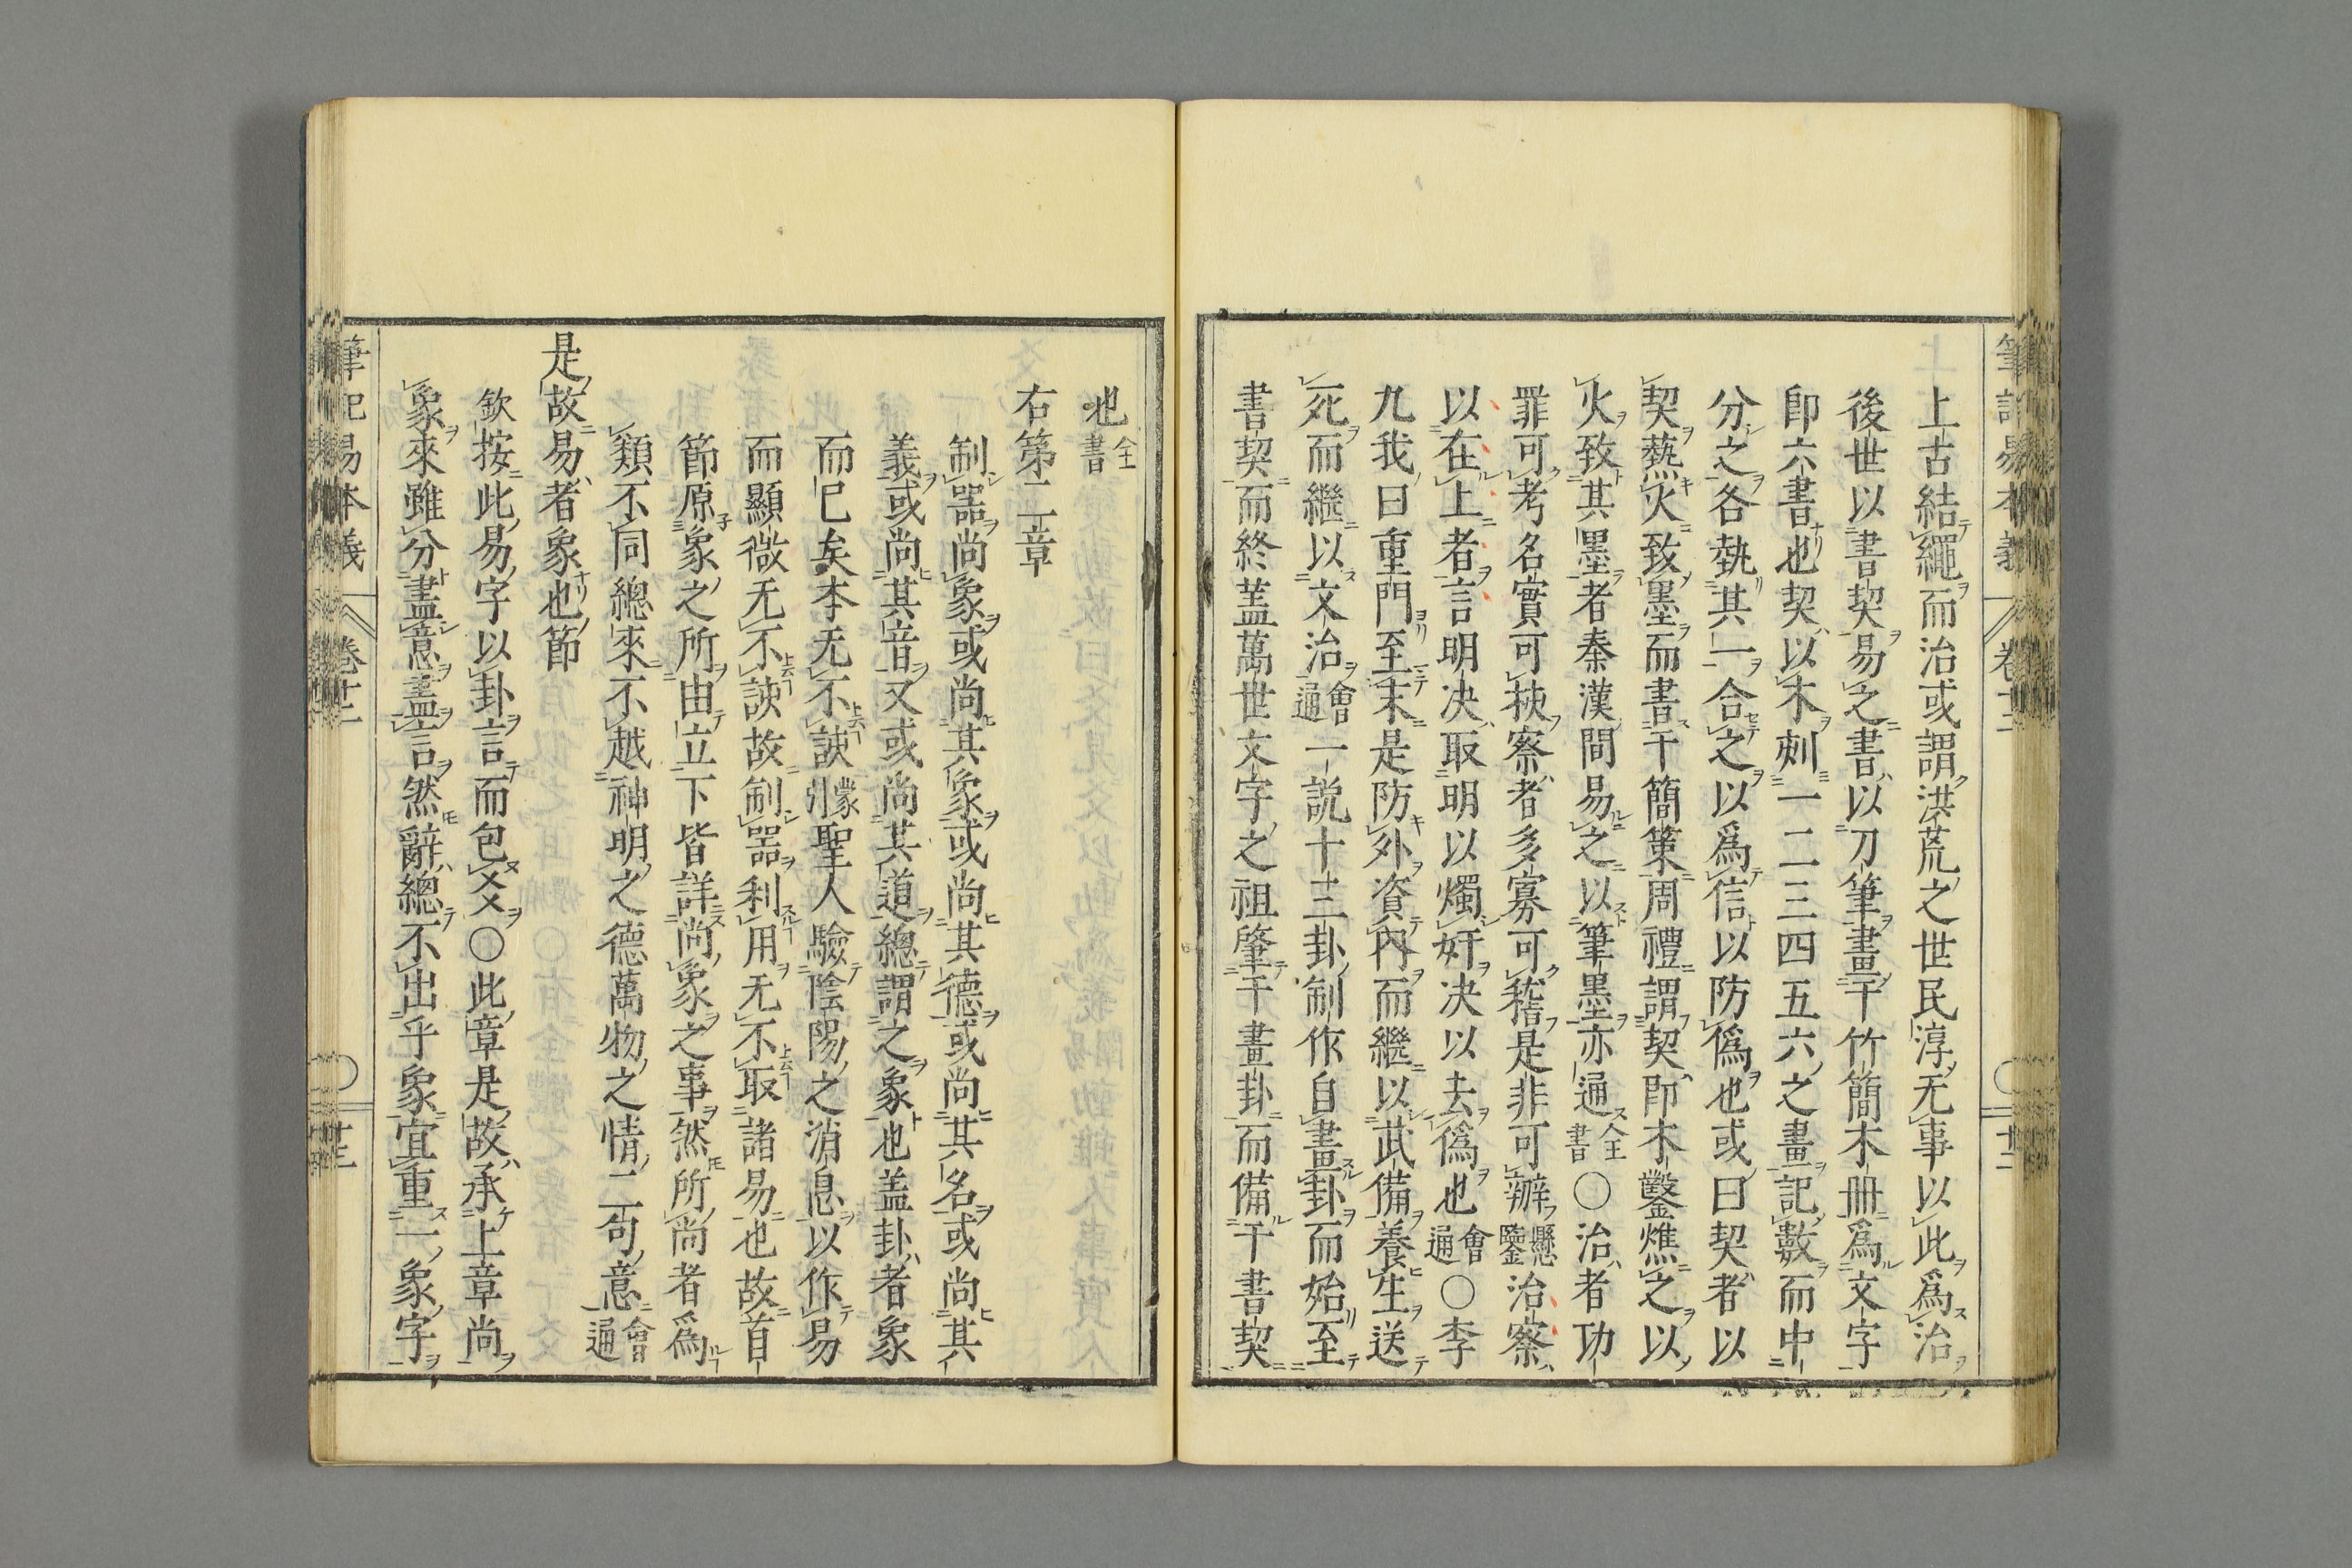 上古結繩而治或謂洪荒之世民淳无事以此爲治
後世以書契易之書以刀筆畫于竹簡木冊爲文字
卽六書也契以木刻一二三四五六之畫記數而中
分之各執其一合之以爲信以防僞也或曰契者以
契爇火致墨而書于簡策周禮謂契卽木鑿燋之以
火致其墨者秦漢間易之以筆墨亦通全書○治者功
罪可考名實可核察者多寡可稽是非可辨懸鑒治察
以在上者言明决取明以燭奸决以去僞也會通○李
九我曰重門至末是防外資內而繼以武備養生送
死而繼以文治會通一說十三卦制作自畫卦而始至
書契而終蓋萬世文字之祖肇于畫卦而備于書契
也全書
右第二章
制器尚象或尚其象或尚其德或尚其名或尚其
義或尚其音又或尚其道總謂之象也盖卦者象
而已矣本无不諛蒙引聖人驗陰陽之消息以作易
而顯微无不諛故制器利用无不取諸易也故首
節原象之所由立下皆詳尚象之事然所尚者爲
類不同總來不越神明之德萬物之情二句意會通
是故易者象也節
欽按此易字以卦言而包爻○此章是故承上章尚
象來雖分盡意盡言然辭總不出乎象宜重一象字
筆記易本義 卷十二 ○